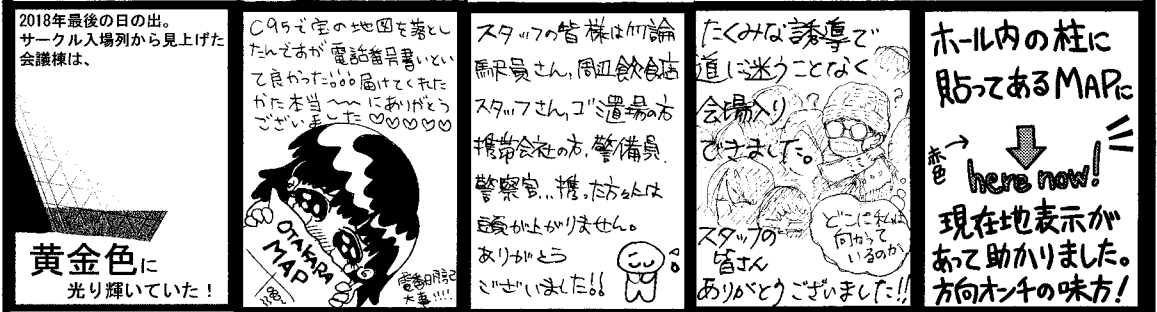 2018年最後の日の出。
サークル入場列から見上げた
会議棟は、
黄金色に
光り輝いていた！
C95で宝の地図を落とし
たんですが電話番号書いとい
て良かった!!。。届けてくれた
かた本当〜〜にありがとう
ございました♡♡♡♡♡
OTAKARA
MAP
電番明記
大事!!!!
スタッフの皆様は勿論
駅員さん,周辺飲食店
スタッフさん,ゴミ置場の方
携帯会社の方、警備員、
警察官...携った方々には
頭が上がりません。
ありがとう
ございました!!
たくみな誘導で
道に迷うことなく
会場入り
できました。
どこに私は
向かって
いるのか
スタッフの
皆さん
ありがとうございました!!
ホール内の柱に
貼ってあるMAPに
赤色→
here now!
現在地表示が
あって助かりました。
方向オンチの味方！